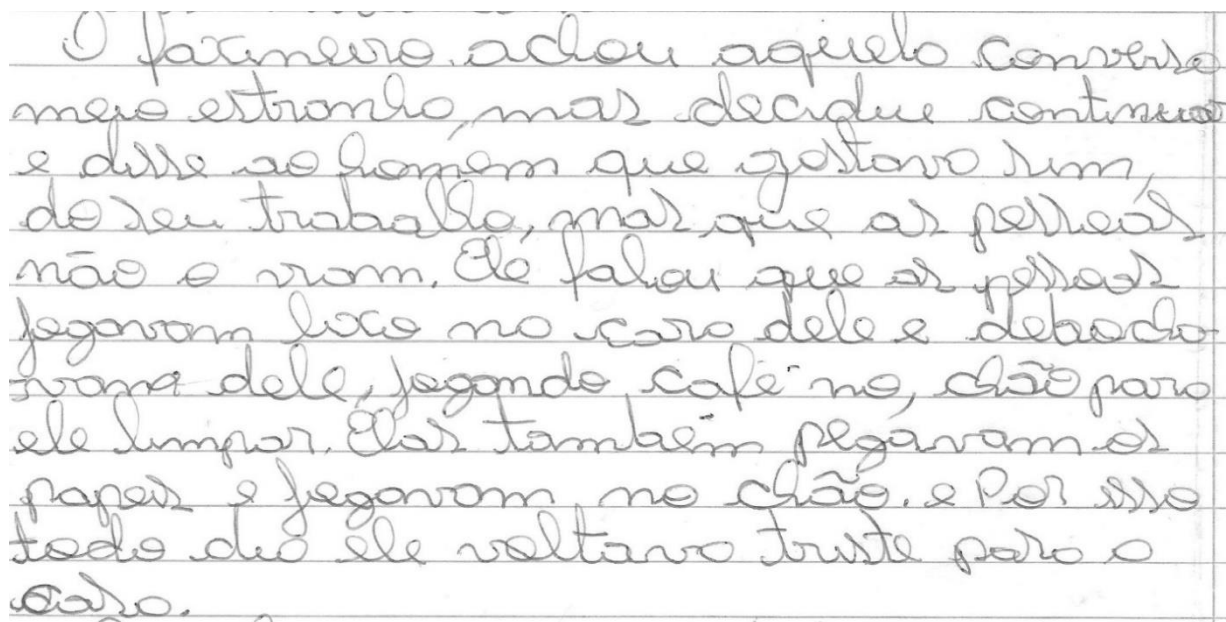 O faxineiro achou aquela conversa
meio estranha, mas decidiu continuar
e disse ao homem que gostava sim,
do seu trabalho, mas que as pessoas
não o viam. Ele falou que as pessoas
jogavam lixo na cara dele e debocha
vam dele, jogando café no, chão para
ele limpar. Elas também pegavam os
papeis e jogavam no chão. e Por isso
todo dia ele voltava triste para a
casa.